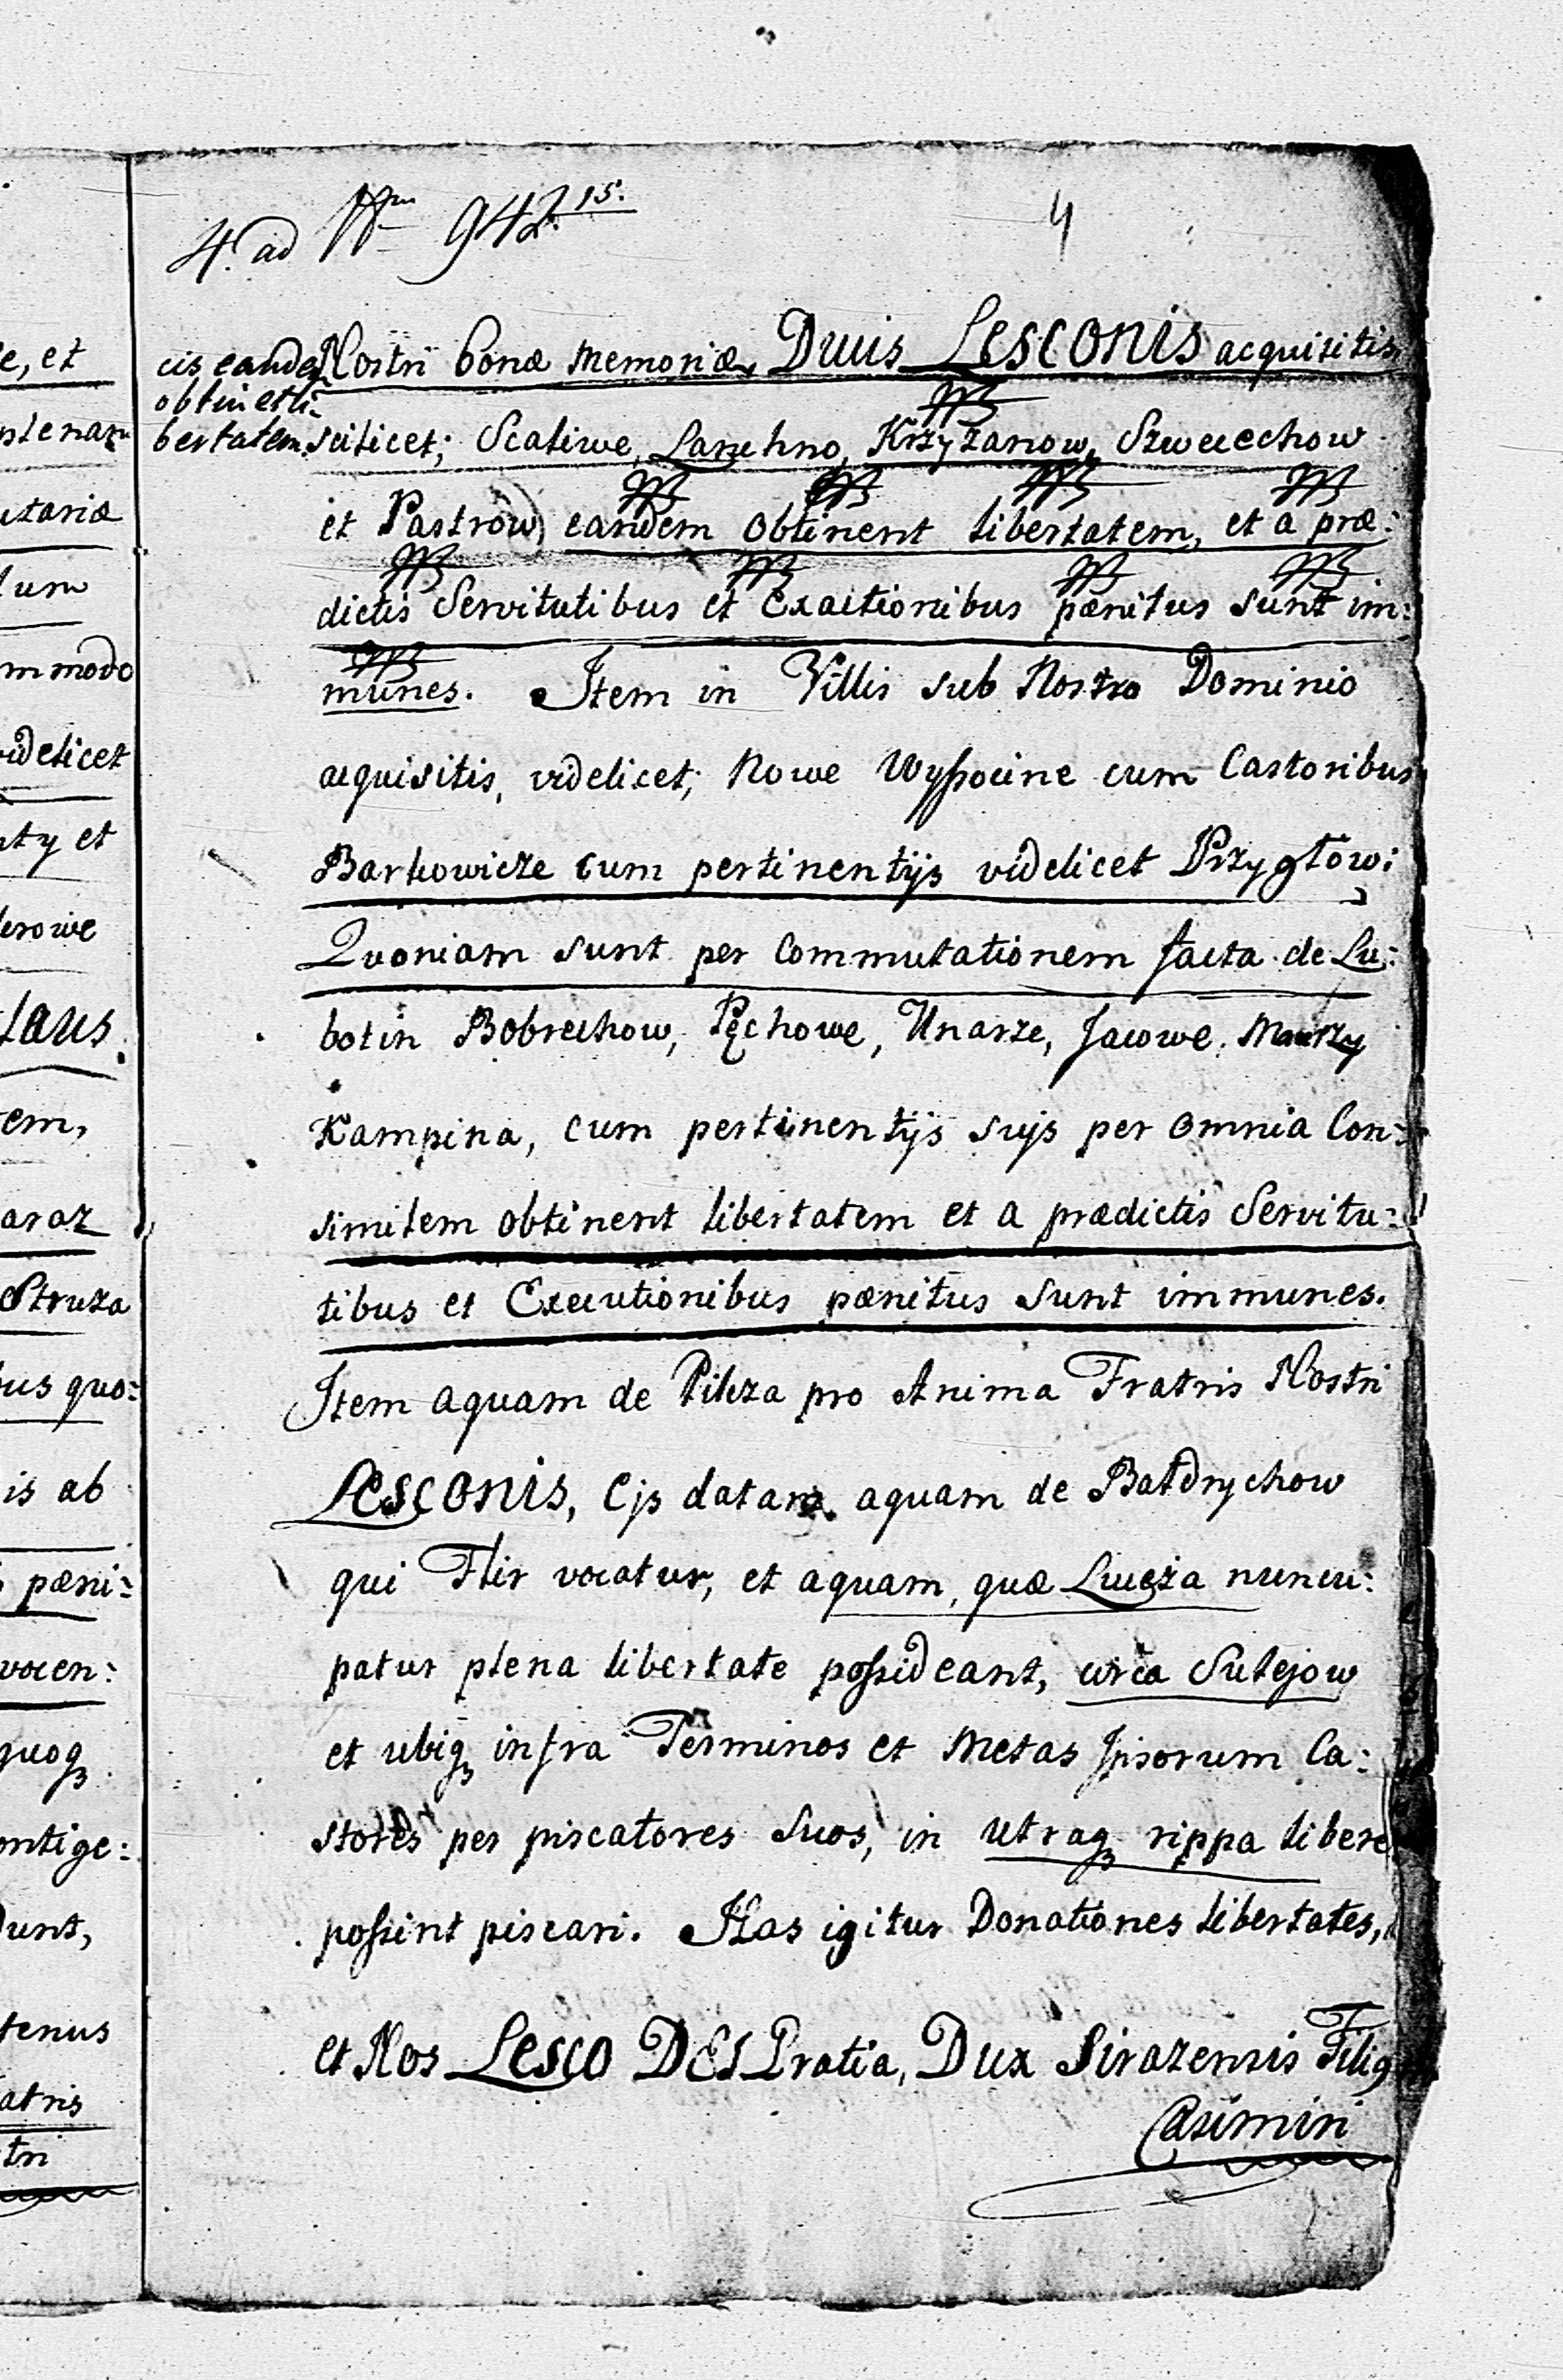 e, et
ntenam
utariæ
tum
mmodo
videlicet
nty et
erowe
laus
em,
araz
Struza
us quo:
is ab
pæni:
vocen:
quoq
ontige:
dunt,
tenus
atris
tri
4. ad Nrm 942. 15.
4
cis eandem
obtinet li:
bertatem
Nostri bonæ memoriæ, Ducis LESCONIS acquisitis
scilicet; Scaliwe, Laznchno, Krzyżanow, Szwecechow
et Pastrow) eandem obtinent libertatem, et a præ:
dictis Servitutibus et Exactionibus pænitus sunt im:
munes. Item in Villis sub Nostro Dominio
acquisitis, videlicet; Nowe Wyssocine cum Castoribus
Barkowicze cum pertinentijs videlicet Przygłow:
Quoniam sunt per Commutationem facta de Lu:
botin Bobrechow, Pęchowe, Unarze, Jacowe.
Kampina, cum pertinentijs sujs per omnia Con:
similem obtinent libertatem et a prædictis Servitu:
tibus et Executionibus pænitus sunt immunes.
Item aquam de Pilcza pro Anima Fratris Nostri
LESCONIS, Ejs datam. aquam de Bałdrychow
qui Flir vocatur, et aquam, quæ Luciąża nuncu:
patur plena libertate possideant, circa Sulejow
et ubiq infra Terminos et Metas Ipsorum Ca:
stores per piscatores Suos, in utraq rippa libere
possint piscari. Has igitur Donationes libertates,
et Nos LESCO DEI Gratia, Dux Sirazensis Filiq
Casimiri